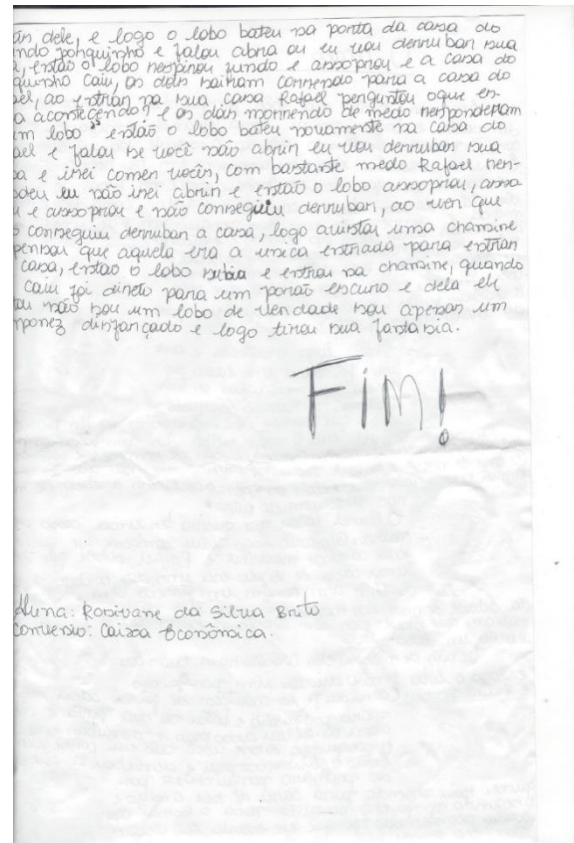 dele, e logo o lobo bateu na porta da casa do
ndo porquinho e falou abria ou eu vou derrubar sua
, então o lobo respirou fundo e assoprou e a casa do
quinho caiu, os dois sairam correndo para a casa do
el, ao entrar na sua casa Rafael perguntou oque es-
a acontecendo? e os dois morrendo de medo responderam
um lobo" então o lobo bateu novamente na casa do
ael e falou se você não abrir eu vou derrubar sua
sa e irei comer vocês, com bastante medo Rafael res-
deu eu não irei abrir e então o lobo assoprou, asso
u e assoprou e não conseguiu derrubar, ao ver que
conseguiu derrubar a casa, logo avistou uma chamine
pensou que aquela era a unica entrada para entrar
casa, então o lobo subiu e entrou na chamine, quando
caiu foi direto para um porão escuro e dela ele
tou não sou um lobo de verdade sou apenas um
mponez disfarçado e logo tirou sua fantasia.
FIM!
Aluna: Rosivane da Silva Brito
Converso: Caixa Econômica.